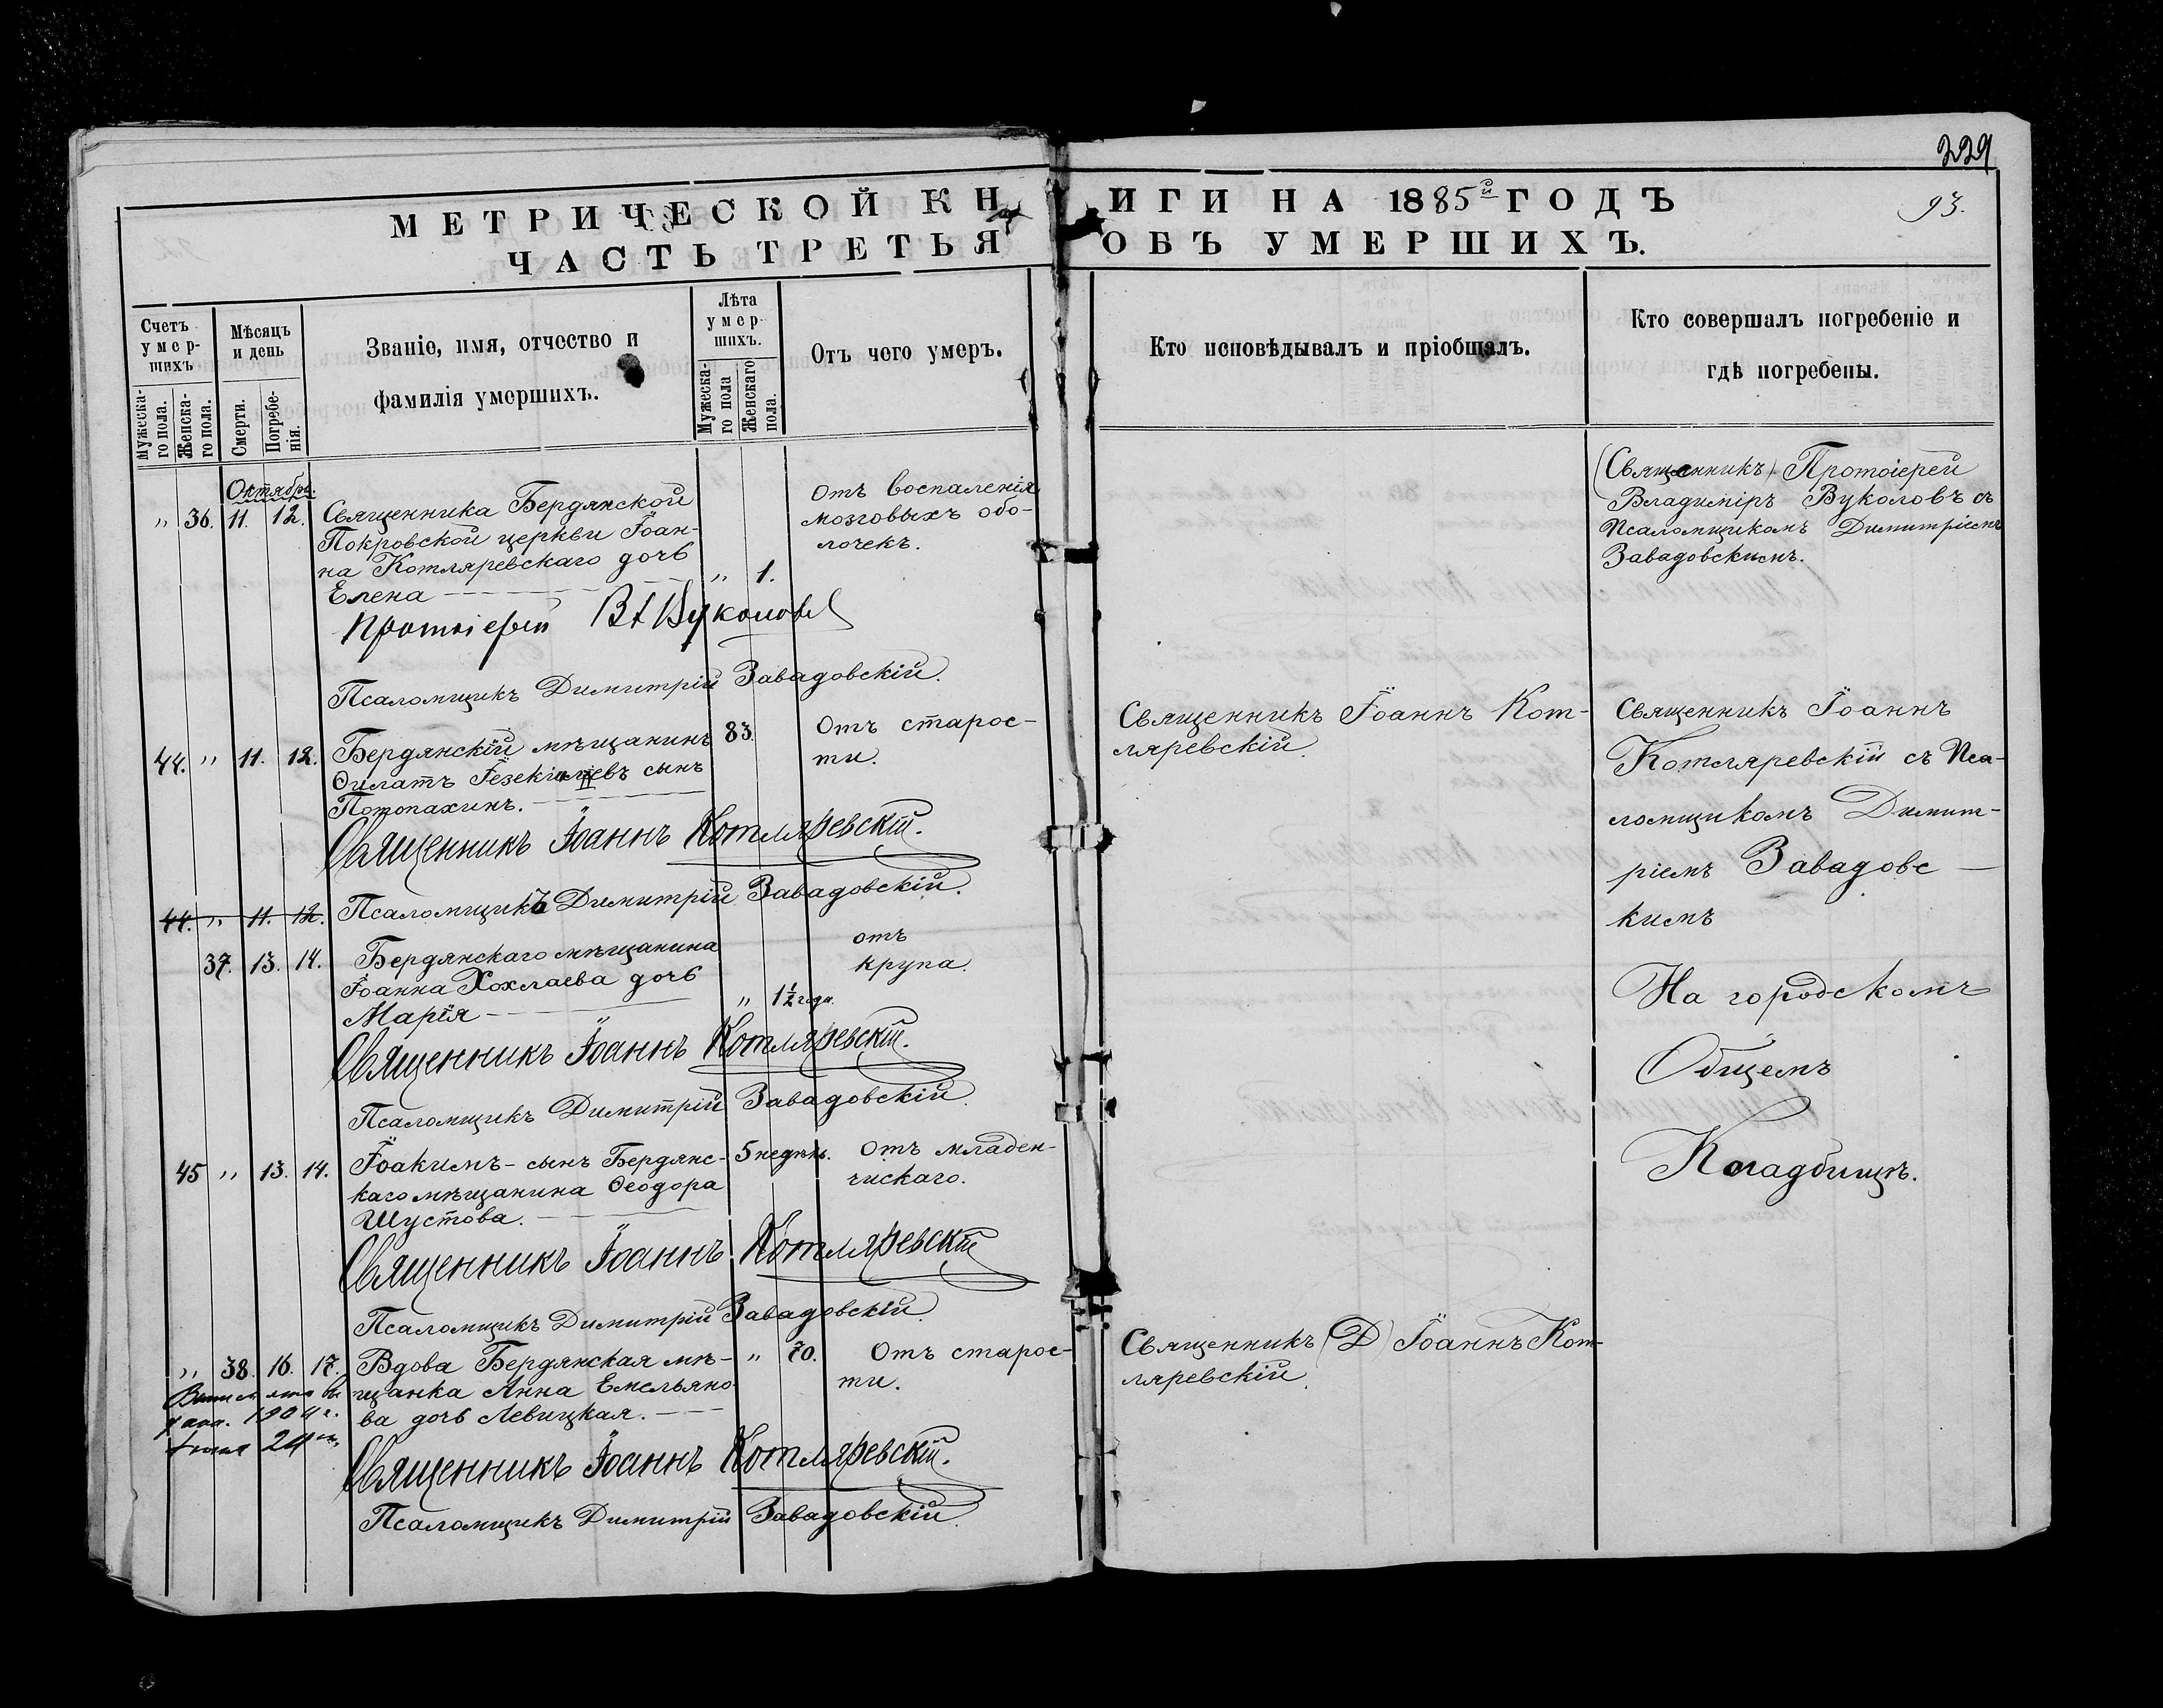 229
МЕТРИЧЕСКОЙ КНИГИ НА 1885й ГОДЪ
93.
ЧАСТЬ ТРЕТЬЯ ОБЪ УМЕРШИХЪ.
Счетъ умер-
шихъ
Мужеска-
го пола.
Женска-
го пола.
Мѣсяцъ
и день
Смерти.
Погребе-
нія.
Званіе, имя, отчество и
фамилія умершихъ.
Лѣта
умер-
шихъ.
Мужеска-
го пола
Женскаго
пола.
Отъ чего умеръ.
Кто исповѣдывалъ и пріобщалъ.
Кто совершалъ погребеніе и
гдѣ погребены.
Октябрь.
„ 36. 11. 12. Священника Бердянской
Покровской церкви Іоан-
на Котляревскаго дочь
Елена
„ 1.
отъ воспаленія
мозговыхъ обо-
лочекъ.
(Священникъ) Протоіерей
Владиміръ Вуколовъ съ
Псаломщикомъ Димитріемъ
Завадовскимъ.
Протоіерей Вл Вуколовъ
Псаломщикъ Димитрій Завадовскій.
44. „ 11. 12. Бердянскій мѣщанинъ 83. Отъ старос-
ти.
Ѳилатъ Іезекіилевъ сынъ
Потопахинъ.
Священникъ Іоаннъ Кот-
ляревскій.
Священникъ Іоаннъ
Котляревскій съ Пса-
ломщикомъ Димит-
ріемъ Завадовс
кимъ
На городскомъ
Общемъ
Кладбищѣ.
Священникъ Іоаннъ Котляревскій.
44. „ 11. 12. Псаломщикъ Димитрій Завадовскій.
37. 13. 14. Бердянскаго мѣщанина
Іоанна Хохлаева дочь
Марія
„ 1½ года.
отъ
крупа.
Священникъ Іоаннъ Котляревскій.
Псаломщикъ Димитрій Завадовскій.
45 „ 13. 14. Іоакимъ - сынъ Бердянс-
каго мѣщанина Ѳеодора
Шустова.
5 недѣль. Отъ младен-
ческаго.
Священникъ Іоаннъ Котляревскій
Псаломщикъ Димитрій Завадовскій.
„ 38. 16. 17. Вдова Бердянская мѣ-
щанка Анна Емельяно-
ва дочь Левицкая.
„ 70. Отъ старос-
ти.
Священникъ (Д) Іоаннъ Кот-
ляревскій.
1904 г.
24
Священникъ Іоаннъ Котляревскій.
Псаломщикъ Димитрій Завадовскій.